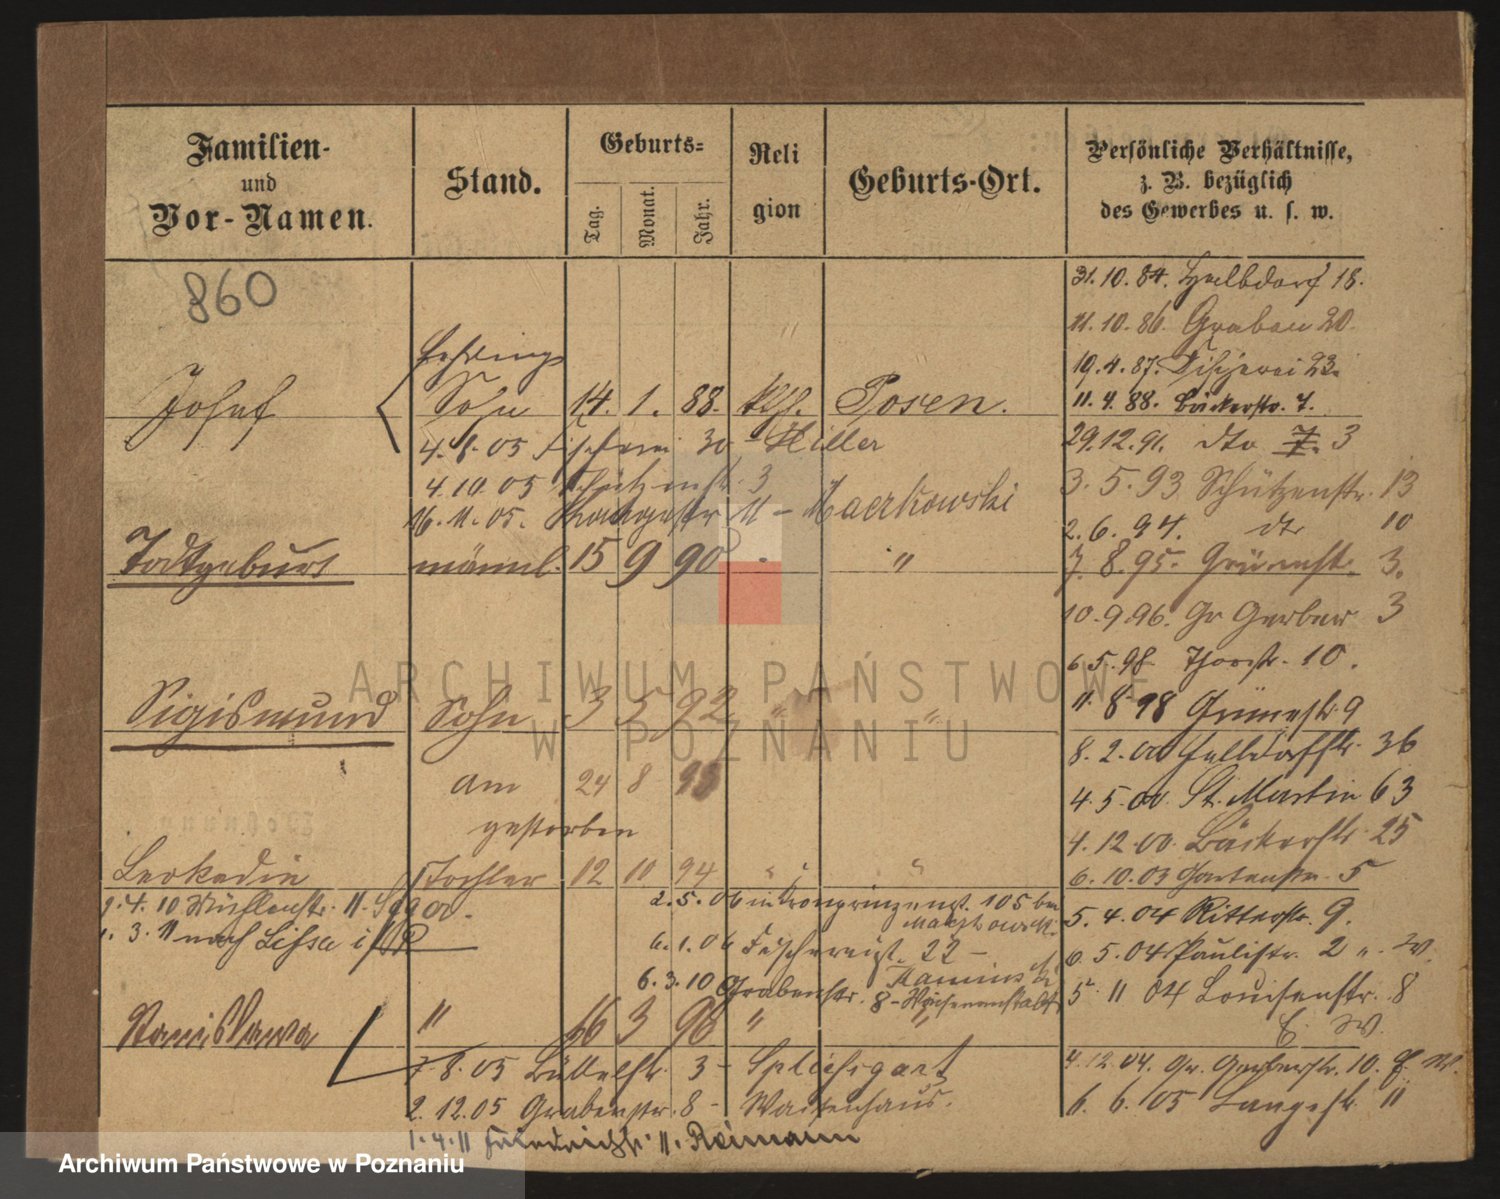 Familien-
und
Vor-Namen.
Stand.
Geburts-
Tag.
Monat.
Jahr.
Reli
gion
Geburts-Ort.
Persönliche Verhältnisse,
z. B. bezüglich
des Gewerbes u. s. w.
860
31.10.84. Halbdorf 18.
11.10.86. Graben 20.
19.4.87. Fischerei 23.
11.4.88. Bäckerstr. 7.
Josef
Lehrling
Sohn 14. 1. 88. kth. Posen.
4.8.05 Fischerei 30 - Hiller
29.12.91. dto 7. 3
4.10.05 Schützenstr. 3
3.5.93 Schützenstr. 13
16.11.05. 11 - Maerkowski
2.6.94. dto 10
Todtgeburt männl. 15 9 90 - "
7.8.95. Grünestr. 3.
10.9.96. Gr Gerber 3
6.5.98. Thorstr. 10.
ARCHIWUM PAŃSTWOWE
W POZNANIU
Sigismund Sohn 3 5 92 " "
11.8.98 Grünestr. 9
8.2.00 Halbdorfstr. 36
am 24 8 93
4.5.00. St. Martin 63
gestorben
4.12.00. Bäckerstr. 25
Leokadia Tochter 12 10 94 " "
6.10.03 Gartenstr. 5
9.4.10 Mühlenstr. 11.
2.5.06 in Kronprinzenst. 105 bei
5.4.04 Ritterstr. 9.
1.3.11 nach Lissa i/P
6.1.06 Fischereist. 22 -
Kaminski
6.5.04 Paulistr. 2 u. W.
6.3.10 Grabenstr. 8 - Waisenanstalt
5.11 04 Louisenstr. 8
E. W.
Stanislawa " 16 3 96 " "
7.8.05 Büttelstr. 3 - Spliesgart
4.12.04. Gr. Gerberstr. 10. E. W.
2.12.05 Grabenstr. 8 - Waisenhaus.
6.6.05 Langestr. 11
1.4.11 Friedrichstr. 11. Reimann
Archiwum Państwowe w Poznaniu